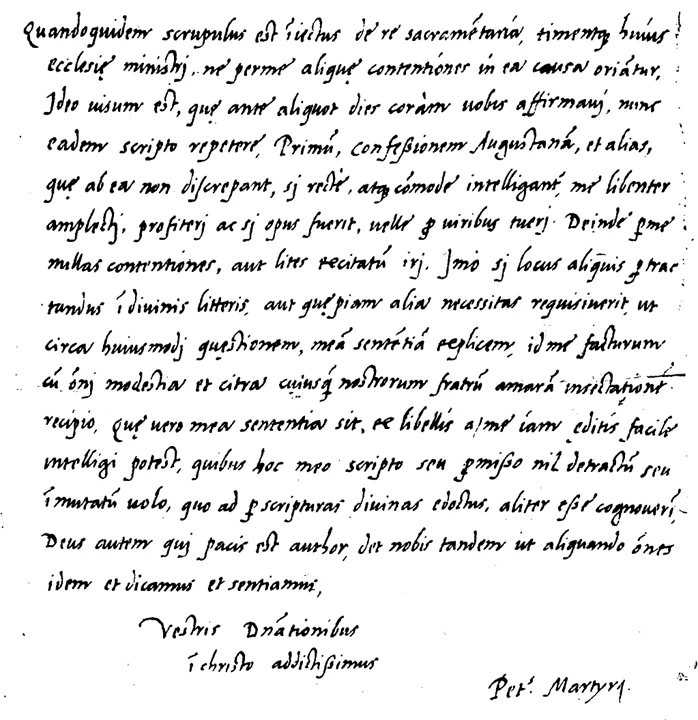 Quandoquidem scrupulus est īiectus de re sacramētaria, timentq̃ huius
ecclesię ministri, ne per me aliquę contentiones in ea causa oriātur,
Ideo uisum est, quę ante aliquot dies coràm uobis affirmaui, nunc
eadem scripto repetere, Primū, confeßionem Augustanā, et alias,
quę ab ea non discrepant, si rectè, atq̃ cōmode intelligant̃, me libenter
amplecti, profiteri ac si opus fuerit, uelle ꝓ uiribus tueri. Deinde ꝑ me
nullas contentiones, aut lites excitatū iri. Imò si locus aliq̃uis ꝑtrac
tandus ī diuinis litteris, aut quępiam alia necessitas requisiuerit, ut
circa huiusmodi quęstionem, meā sentētiā explicem, id me facturum
cū ōni modestia et citra cuiusq̃ nostrorum fratrū amarā insectationē
recipio, Quę uero mea sententia sit, ex libellis a me iam editis facile
intelligi potest, quibus hoc meo scripto seu ꝓmißo nil detractū seu
īmutatū uolo, quo ad ꝑ scripturas diuinas edoctus, aliter eße cognouerī,
Deus autem qui pacis est author, det nobis tandem ut aliquando ōnes
idem et dicamus et sentiamus,
Vestris Dnātionibus
ī christo addictißimus
Pet. Martyr